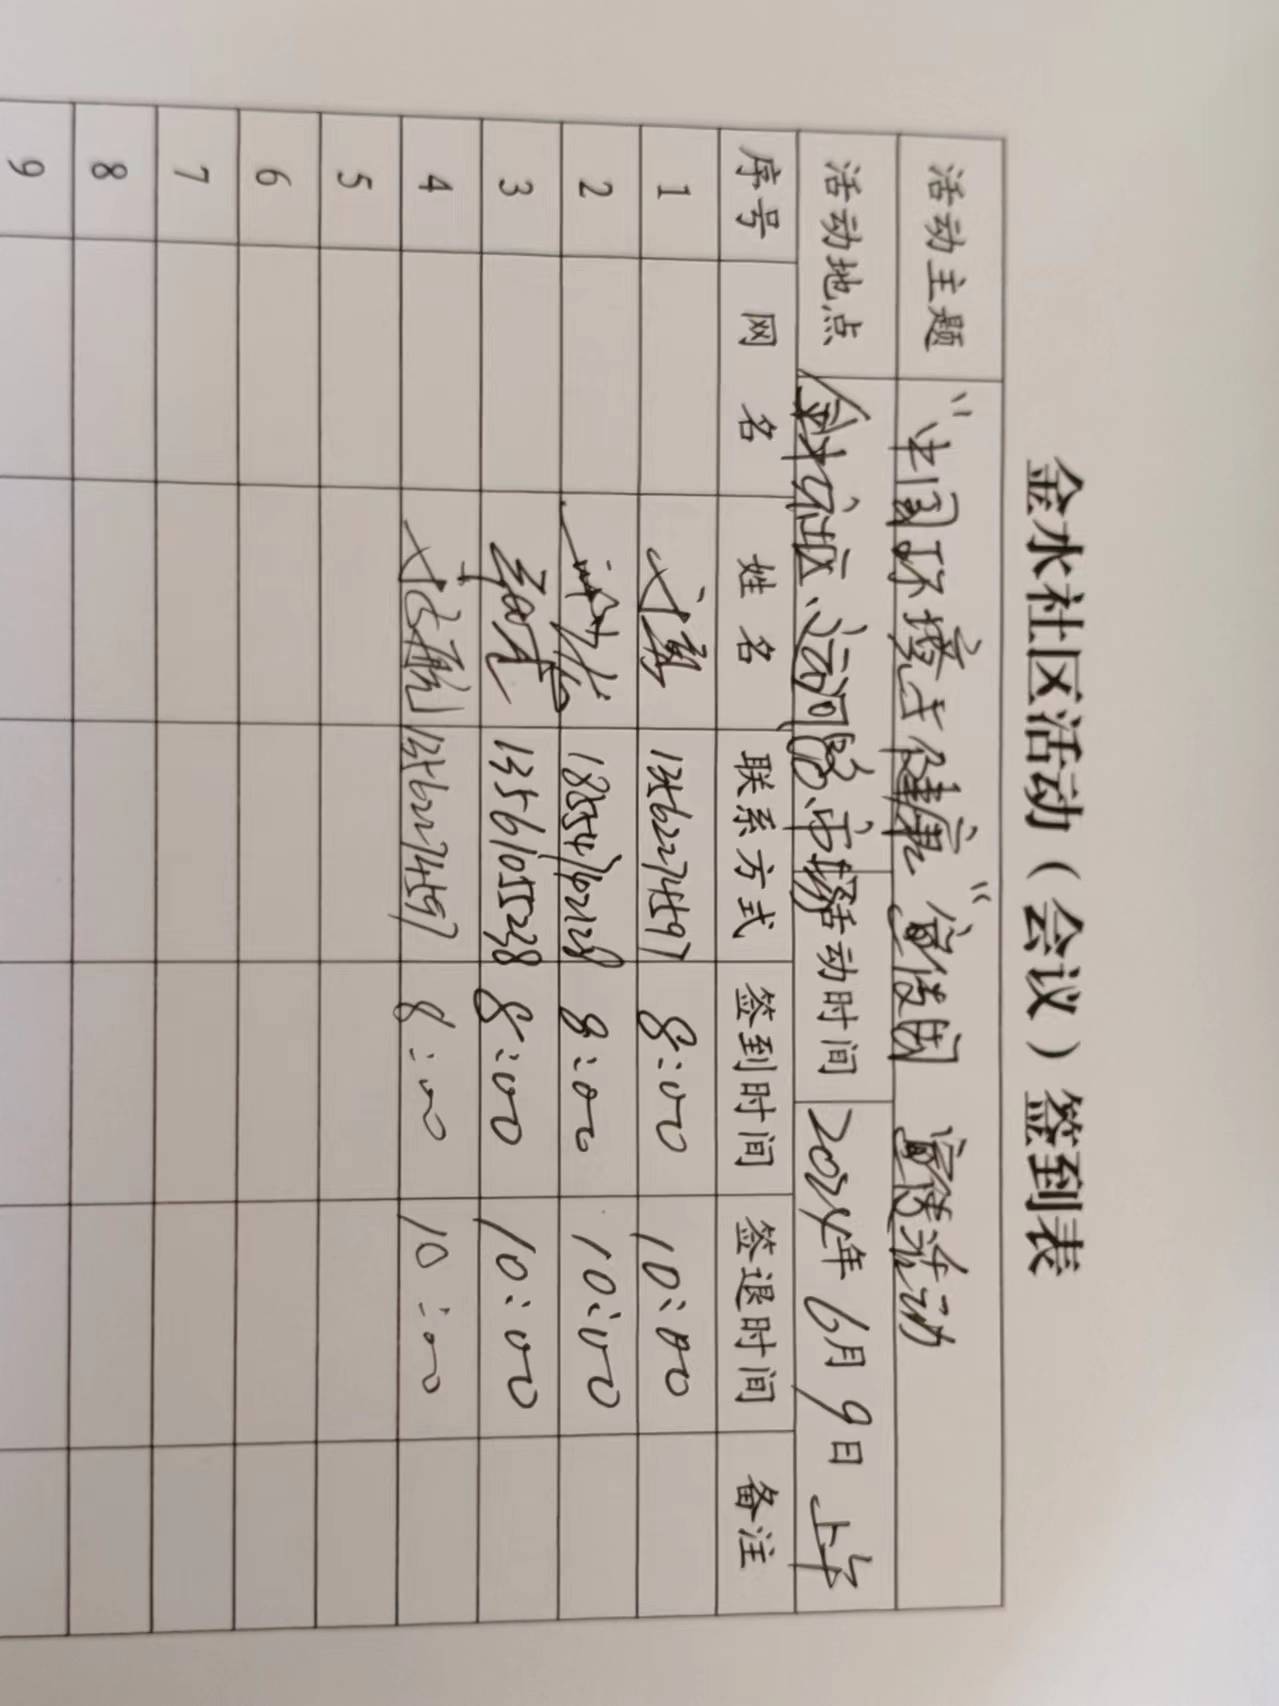 金水社区活动（会议）签到表
活动主题 “中国环境与健康”宣传周 宣传活动
活动地点 金水社区、运河路市场 活动时间 2024年6月9日 上午
序号 网名 姓名 联系方式 签到时间 签退时间 备注
1 13562274597 8:00 10:00
2 8:00 10:00
3 13561055238 8:00 10:00
4 13562274597 8:00 10:00
5
6
7
8
9